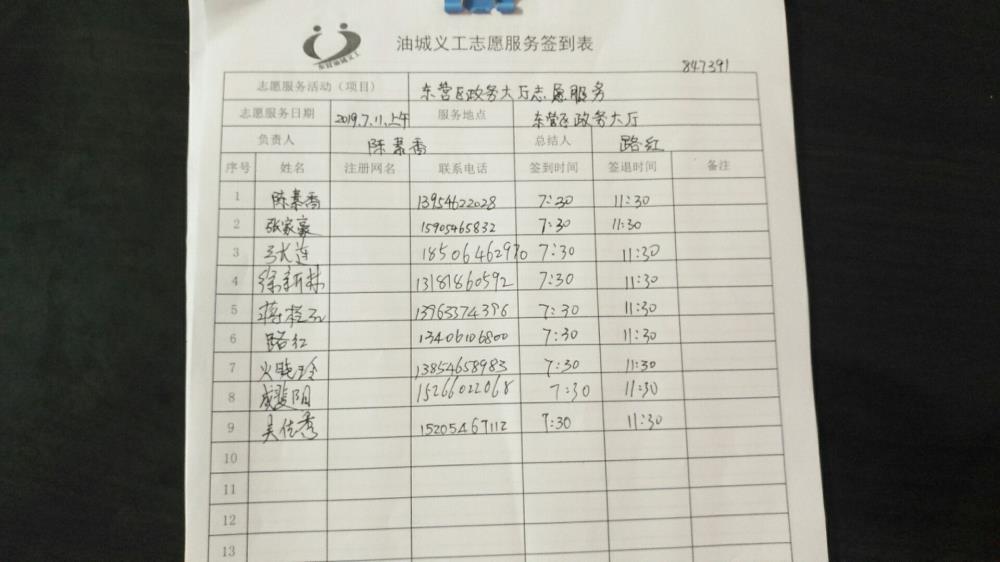 东营油城义工
油城义工志愿服务签到表
847391
志愿服务活动（项目） 东营区政务大厅志愿服务
志愿服务日期 2019.7.11.上午 服务地点 东营区政务大厅
负责人 陈素香 总结人 路红
序号 姓名 注册网名 联系电话 签到时间 签退时间 备注
1 陈素香 13954622028 7:30 11:30
2 张家豪 15905465832 7:30 11:30
3 张连 18506462970 7:30 11:30
4 徐新林 13181860592 7:30 11:30
5 13963374396 7:30 11:30
6 路红 13406106800 7:30 11:30
7 火晓玲 13854658983 7:30 11:30
8 15266022068 7:30 11:30
9 吴佳秀 15205467112 7:30 11:30
10
11
12
13